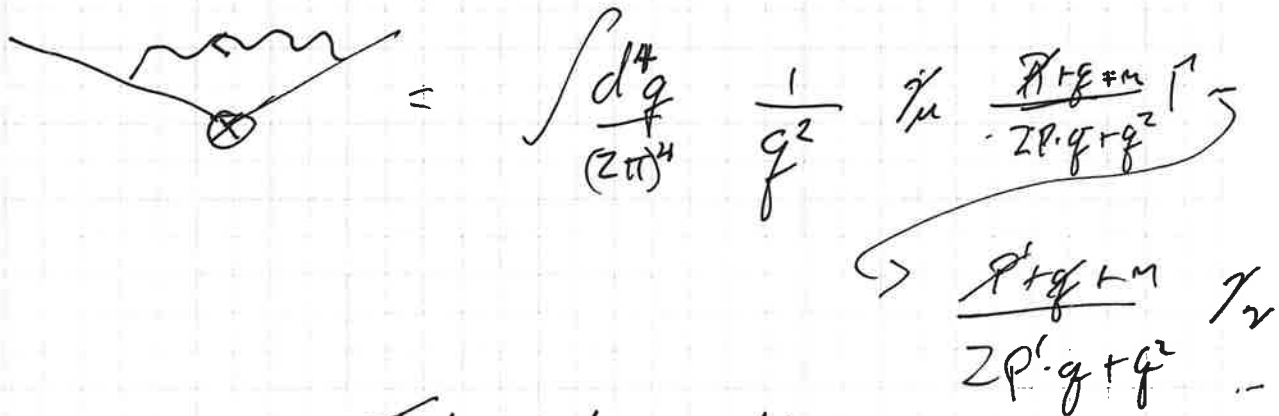 = ∫ d⁴q/(2π)⁴ 1/q² γ_μ (p̸+q̸+m)/(2p·q+q²) Γ
(p̸'+q̸+m)/(2p'·q+q²) γ_ν